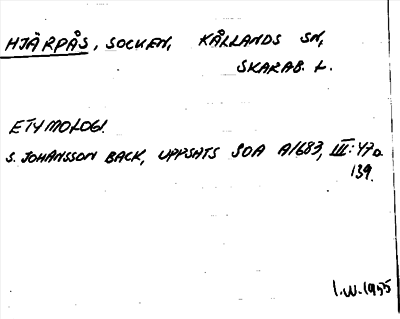 HJÄRPÅS, SOCKEN, KÅLLANDS SN,
SKARAB. L.
ETYMOLOGI.
S. JOHANSSON BACK, UPPSATS SOA A1683, III:47a
139.
I.W. 1955